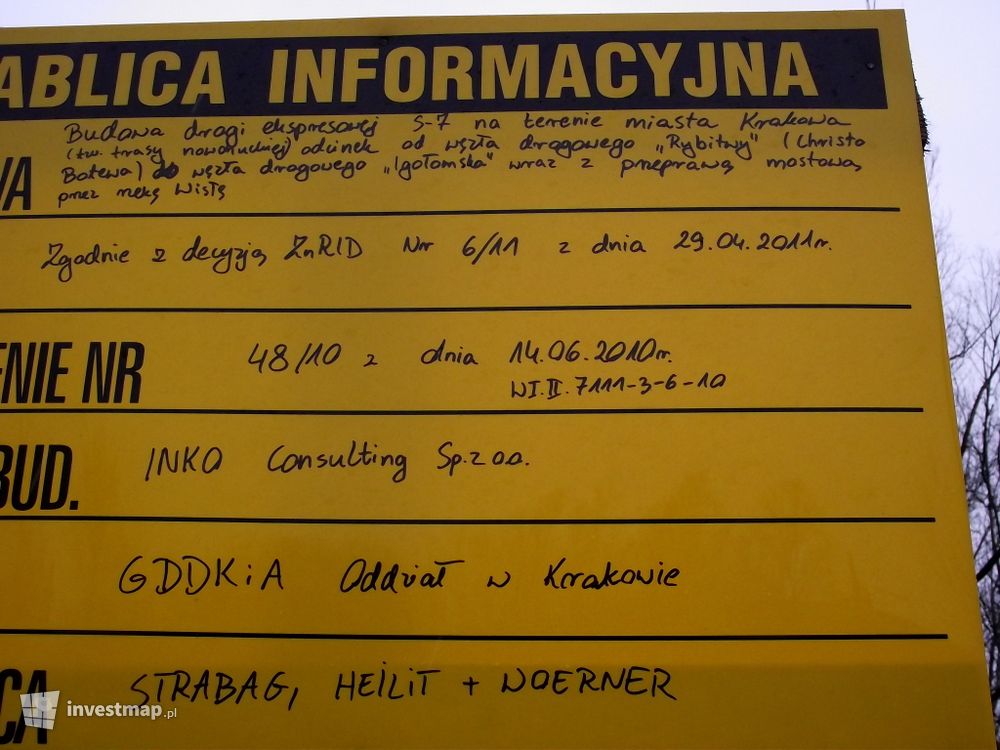 ABLICA INFORMACYJNA
Budowa drogi ekspresowej S-7 na terenie miasta Krakowa
(tw. trasy nowohuckiej) odcinek od węzła drogowego „Rybitwy" (Christo
WA Botewa) do węzła drogowego „Igołomska" wraz z przeprawą mostową
przez rzekę Wisłę
Zgodnie z decyzją ZnRID Nr 6/11 z dnia 29.04.2011r.
ENIE NR 48/10 z dnia 14.06.2010r.
WI.II.7111-3-6-10
BUD. INKO Consulting Sp. z o.o.
GDDKiA Oddział w Krakowie
CA STRABAG, HEILIT + WOERNER
investmap.pl